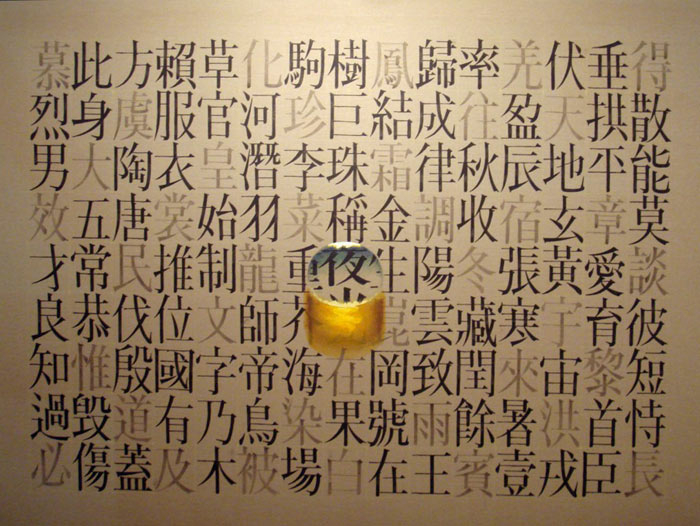 得散能莫談彼短恃長
垂拱平章愛育黎首臣
伏天地玄黃宇宙洪戎
羌盈辰宿張寒來暑壹
率往秋收冬藏閏餘賓
歸成律調陽雲致雨王
鳳結霜金生崑岡號在
樹巨珠稱夜光在果白
駒珍李菜重芥海染場
化河潛羽龍師帝鳥被
草官皇始制文字乃木
賴服衣裳推位國有及
方虞陶唐民伐殷道蓋
此身大五常恭惟毀傷
慕烈男效才良知過必